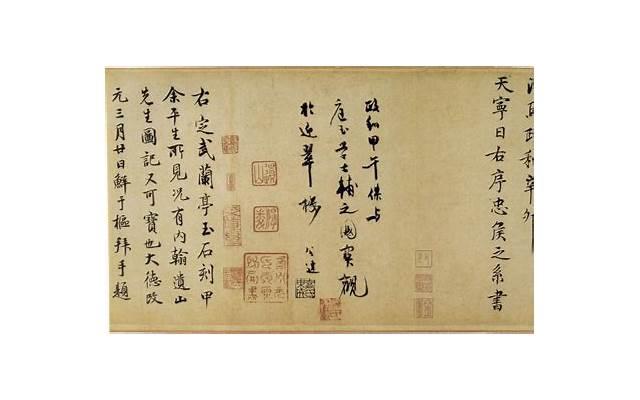 政和辛卯
天寧日右序忠侯之系書
政和甲午
庭玉士輔之國寶觀
翠樓
右定武蘭亭玉石刻甲
余平生所見況有内翰遺山
先生圖記又可寶也大德改
元三月廿日鮮于樞拜手題